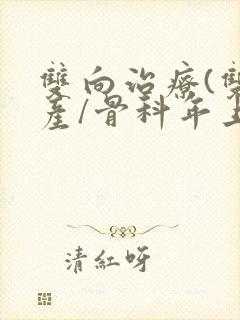 雙向治療(雙
產/骨科年上
清紅呀